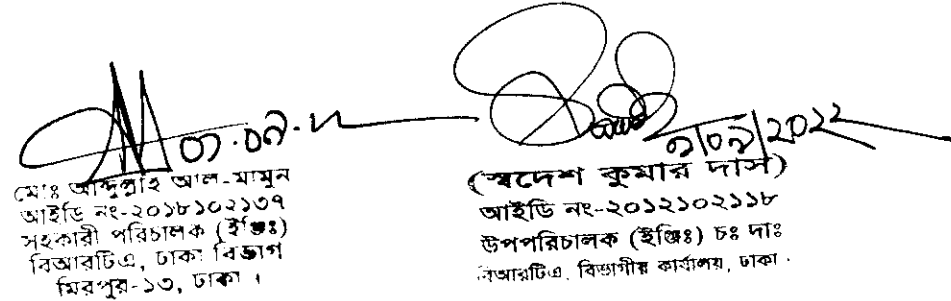 ০১.০৯.২২
মোঃ আব্দুল্লাহ আল-মামুন
আইডি নং-২০১৮১০২১৩৭
সহকারী পরিচালক (ইঞ্জিঃ)
বিআরটিএ, ঢাকা বিভাগ
মিরপুর-১৩, ঢাকা ।
/০৯/২০২২
(স্বদেশ কুমার দাস)
আইডি নং-২০১২১০২১১৮
উপপরিচালক (ইঞ্জিঃ) চঃ দাঃ
বিআরটিএ, বিভাগীয় কার্যালয়, ঢাকা।